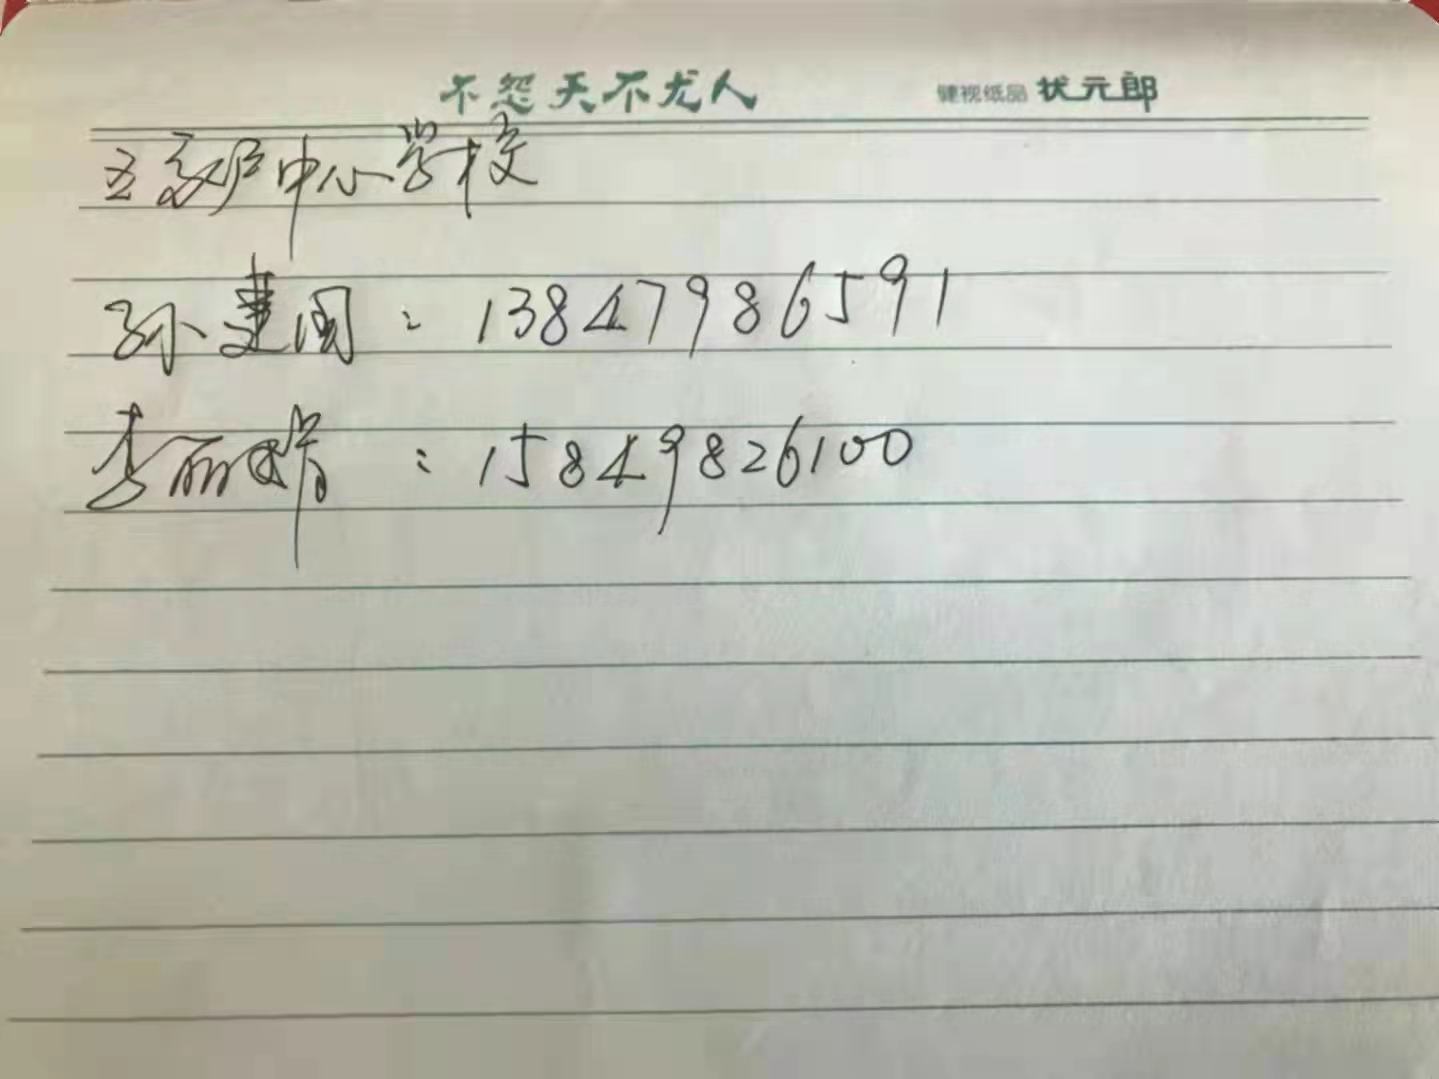 不怨天不尤人 健视纸品 状元郎
中心学校
孙建国：13847986591
李丽：15849826100